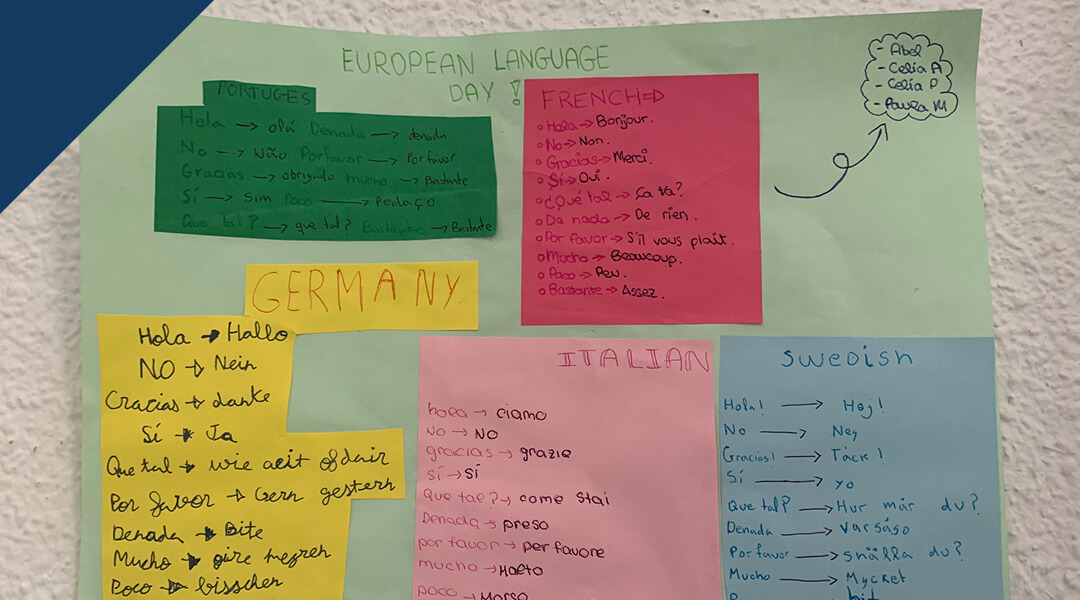 EUROPEAN LANGUAGE
DAY !
- Abel
- Celia A
- Celia P
- Paula M
PORTUGES
Hola → olá Denada → denada
No → Não Porfavor → Por favor
Gracias → obrigado mucho → Bastante
Sí → Sim Poco → Pedaço
Que tal? → que tal? Bastante → Bastante
FRENCH⇒
Hola → Bonjour.
No → Non.
Gracias → Merci.
Sí → Oui.
¿Qué tal → Ça va?
Da nada → De rien.
Por favor → S'il vous plaît.
Mucho → Beaucoup.
Poco → Peu.
Bastante → Assez.
GERMANY.
Hola → Hallo
NO → Nein
Gracias → danke
Sí → Ja
Que tal → wie
Por favor → gestern
Denada → Bite
Mucho →
Poco → bisschen
ITALIAN
hola → ciamo
NO → NO
gracias → grazie
sí → sí
Que tal? → come stai
Denada → preso
por favor → per favore
mucho → Molto
poco → Morso
Swedish
Hola! → Hej!
No → Nej
Gracias! → Tack!
Sí → yo
Que tal? → Hur mår du?
Denada → Varsågo
Por favor → snälla du?
Mucho → Mycket
bit